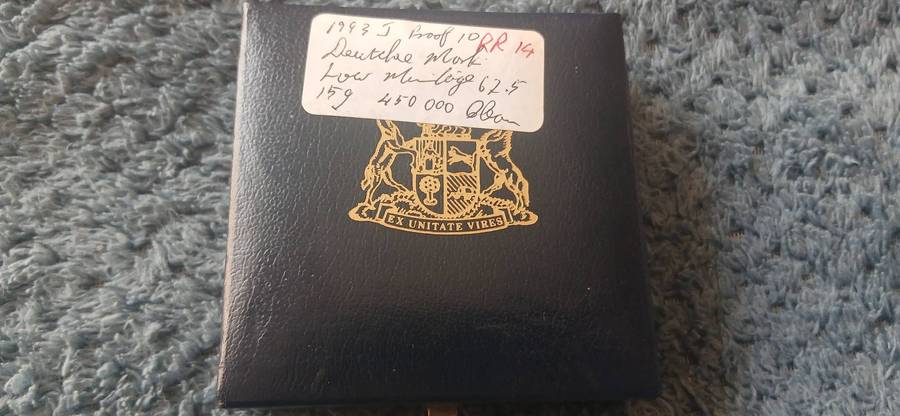 1993 J Proof 10 RR 14
Deutche Mark
Low Mintage 62.5
15g 450 000
EX UNITATE VIRES